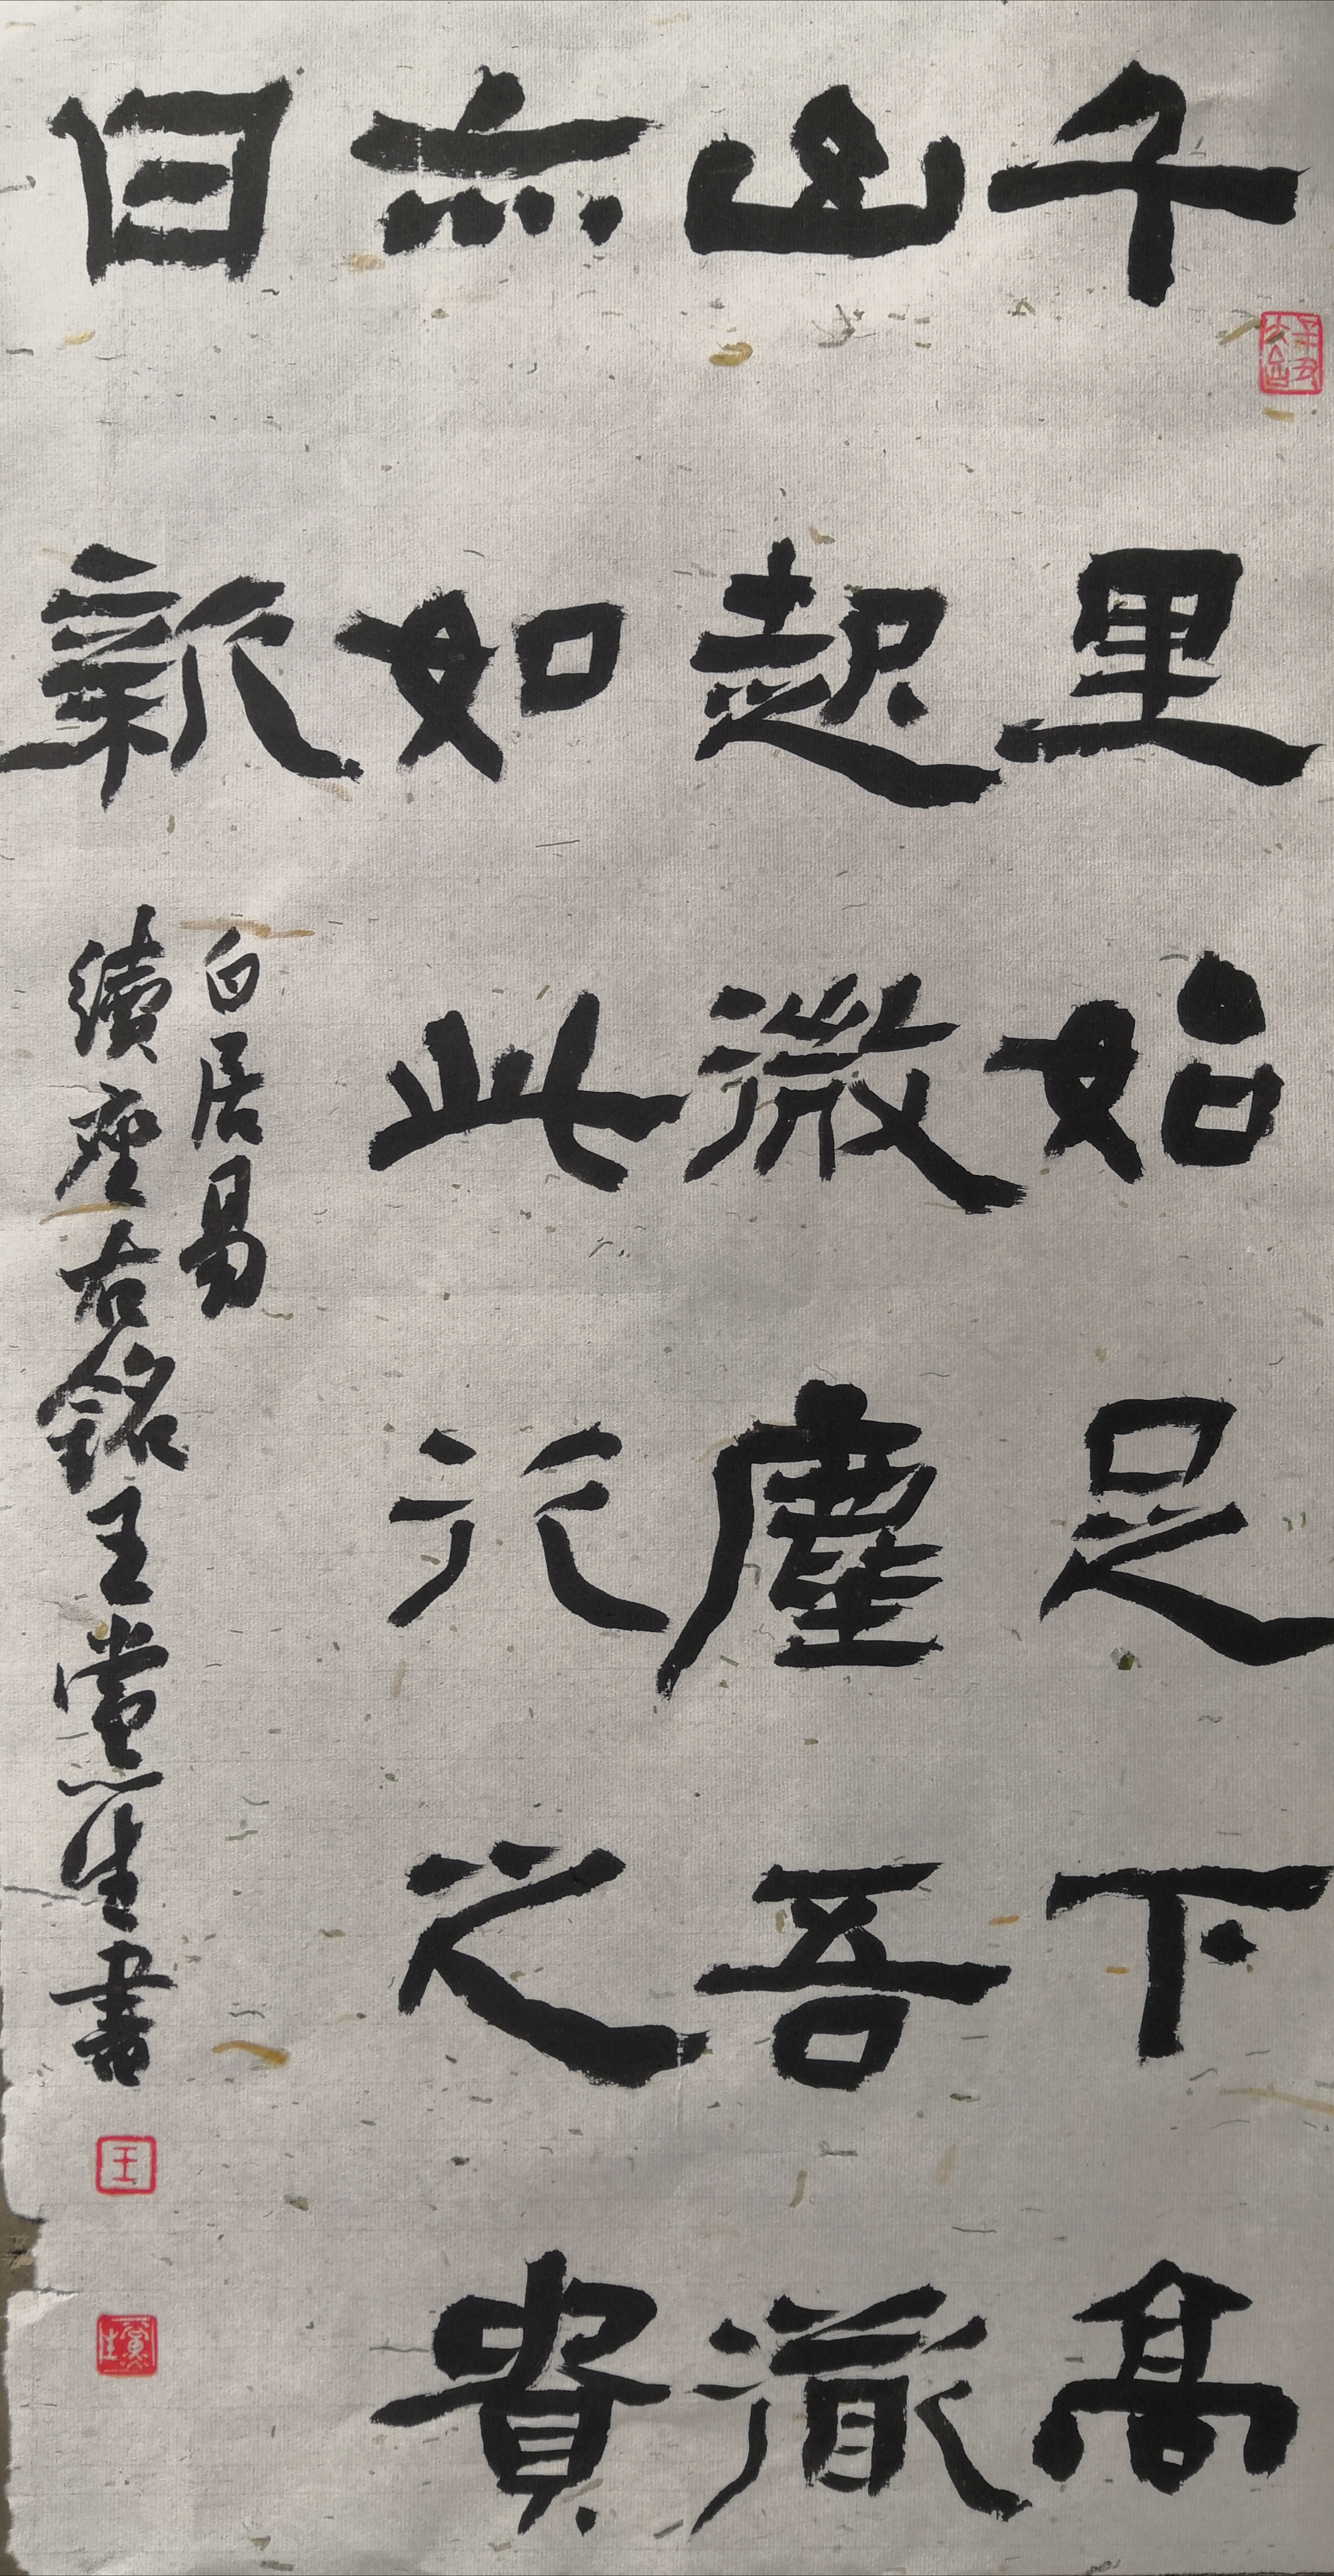 千里始足下高
山起微塵吾道
亦如此行之貴
日新
白居易
續座右銘王黨生書
王